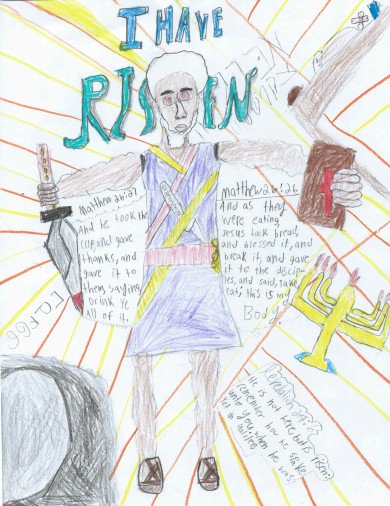 I HAVE
RISEN
Matthew 26:27
And he took the
cup, and gave
thanks, and
gave it to
them, saying,
Drink ye
all of it.
Matthew 26:26
And as they
were eating,
Jesus took bread,
and blessed it, and
break it, and gave
it to the discip-
les, and said, take,
eat; this is my
Body.
24:6
He is not here, but is risen:
remember how he spake
unto you when he was
yet in Galilee,